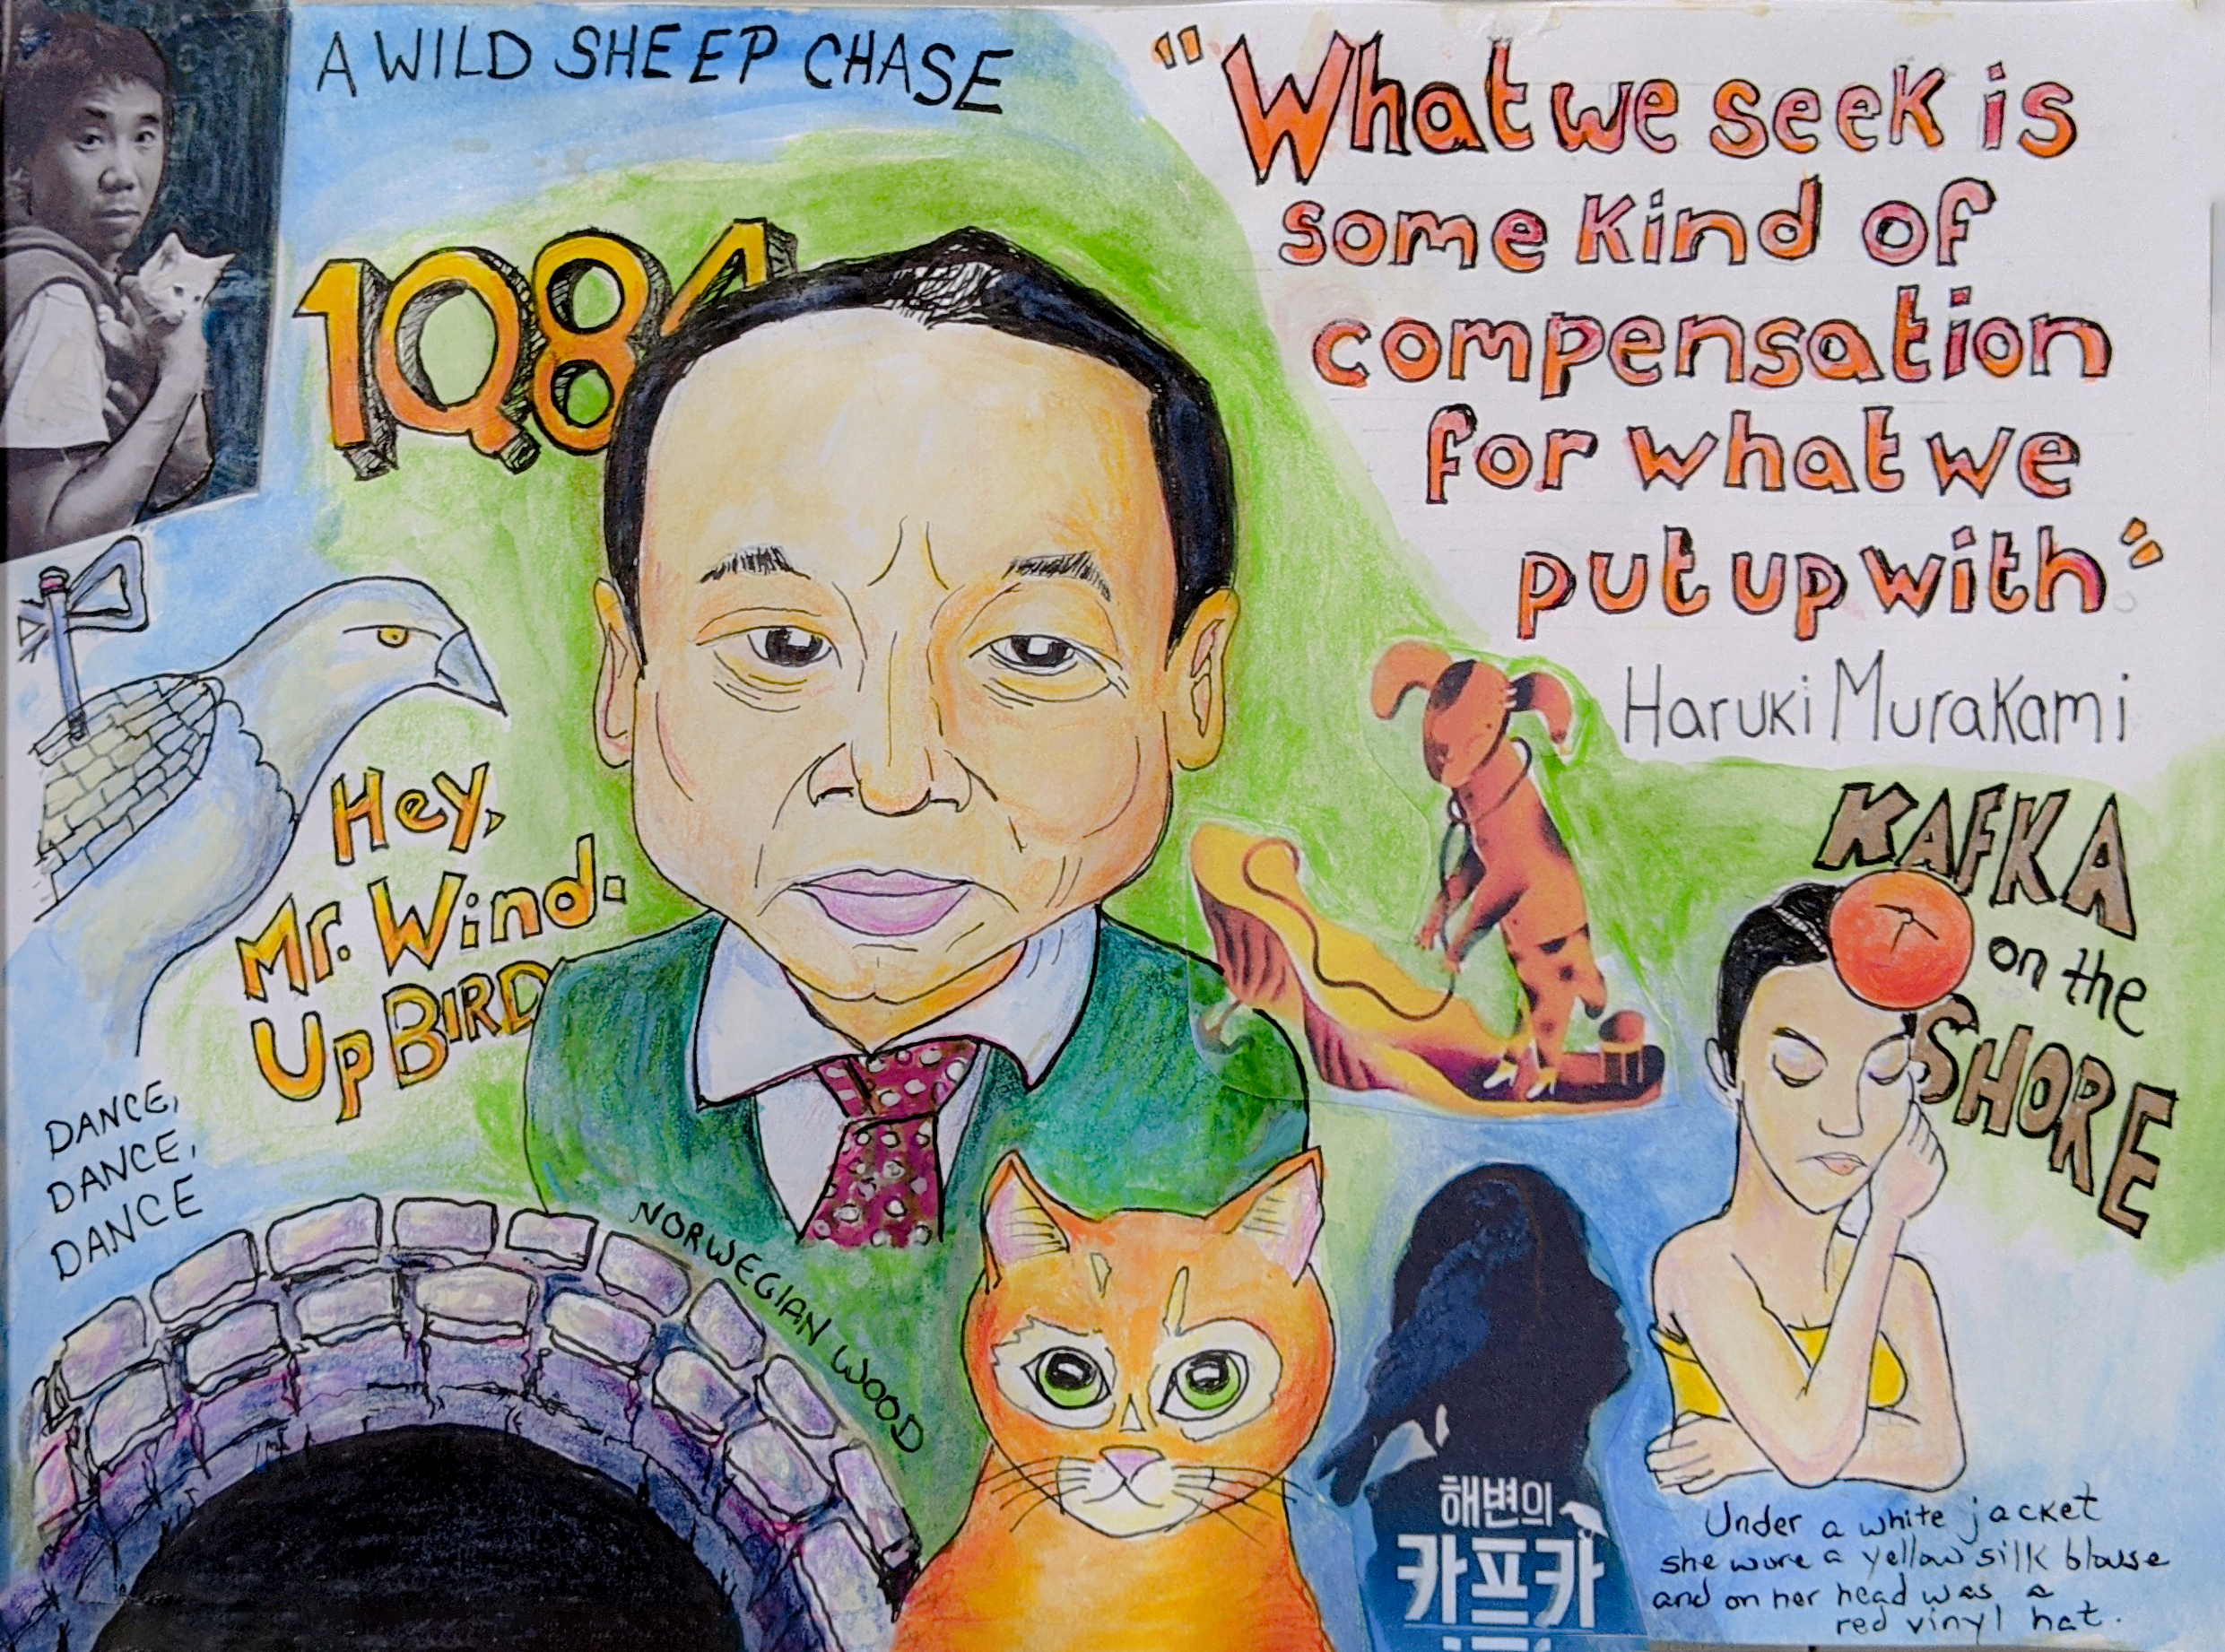 A WILD SHEEP CHASE
"What we seek is
some kind of
compensation
for what we
put up with"
Haruki Murakami
1Q84
Hey,
Mr. Wind-
Up BIRD
KAFKA
on the
SHORE
DANCE,
DANCE,
DANCE
NORWEGIAN WOOD
해변의
카프카
Under a white jacket
she wore a yellow silk blouse
and on her head was a
red vinyl hat.